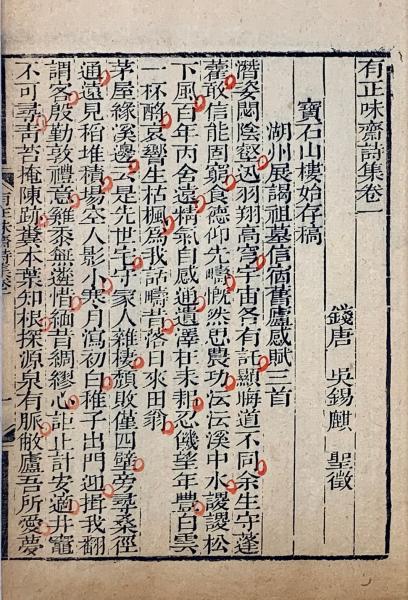 有正味齋詩集卷一
錢唐 吳錫麒 聖徵
寶石山樓始存稿
湖州展謁祖墓信宿舊廬感賦三首
潛姿閟陰壑迅羽翔高穹宇宙各有託顯晦道不同余生守蓬
藋敢信能固窮食德仰先疇慨然思農功沄沄溪中水謖謖松
下風百年丙舍遠精氣自感通遺澤在耒耜忍饑望年豐白雲
一杯酪哀響生枯楓爲我話疇昔落日來田翁
茅屋緣溪邊云是先世宅守冢人雜棲頹敗僅四壁旁尋桑徑
通遠見稻堆積場空人影小寒月瀉初白稚子出門迎揖我翻
謂客殷勤敦禮意雞黍無遴惜緬昔綢繆心詎止計安適井竈
不可尋靑苔掩陳跡糞本葉知根探源泉有脈敝廬吾所愛夢